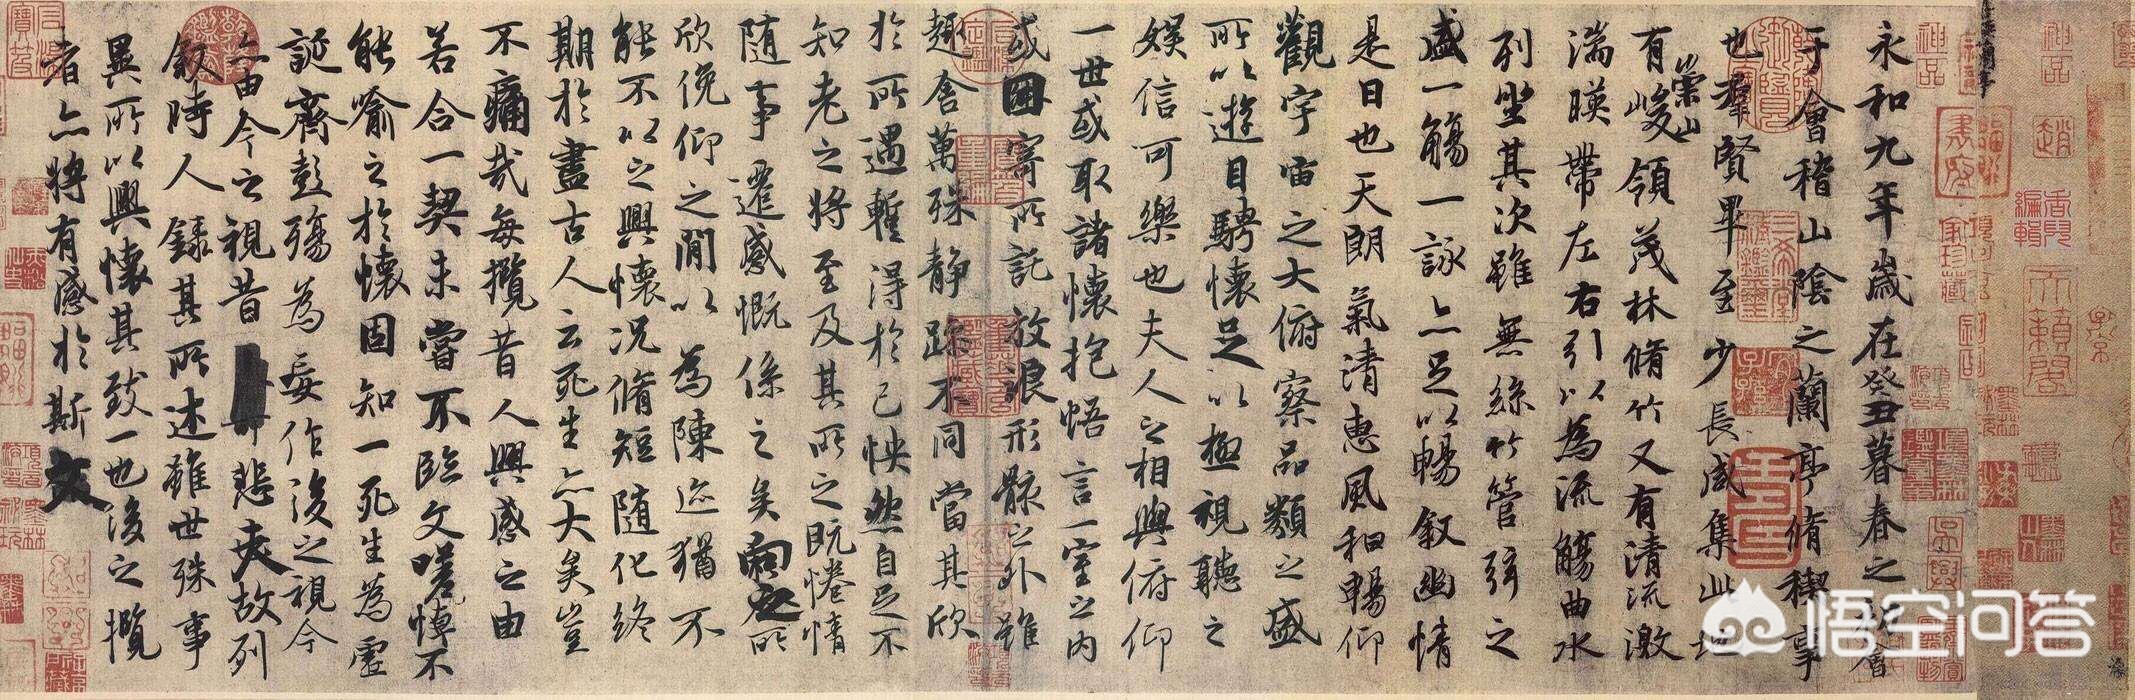 永和九年歲在癸丑暮春之初會
于會稽山陰之蘭亭脩稧事
也羣賢畢至少長咸集此地
有崇山峻領茂林脩竹又有清流激
湍暎帶左右引以為流觴曲水
列坐其次雖無絲竹管弦之
盛一觴一詠亦足以暢敘幽情
是日也天朗氣清惠風和暢仰
觀宇宙之大俯察品類之盛
所以遊目騁懷足以極視聽之
娛信可樂也夫人之相與俯仰
一世或取諸懷抱悟言一室之內
或因寄所託放浪形骸之外雖
趣舍萬殊静躁不同當其欣
於所遇暫得於己怏然自足不
知老之將至及其所之既惓情
隨事遷感慨係之矣向之所
欣俛仰之閒以為陳迹猶不
能不以之興懷況脩短隨化終
期於盡古人云死生亦大矣豈
不痛哉每攬昔人興感之由
若合一契未嘗不臨文嗟悼不
能喻之於懷固知一死生為虛
誕齊彭殤為妄作後之視今
亦由今之視昔悲夫故列
敘時人錄其所述雖世殊事
異所以興懷其致一也後之攬
者亦將有感於斯文
悟空问答